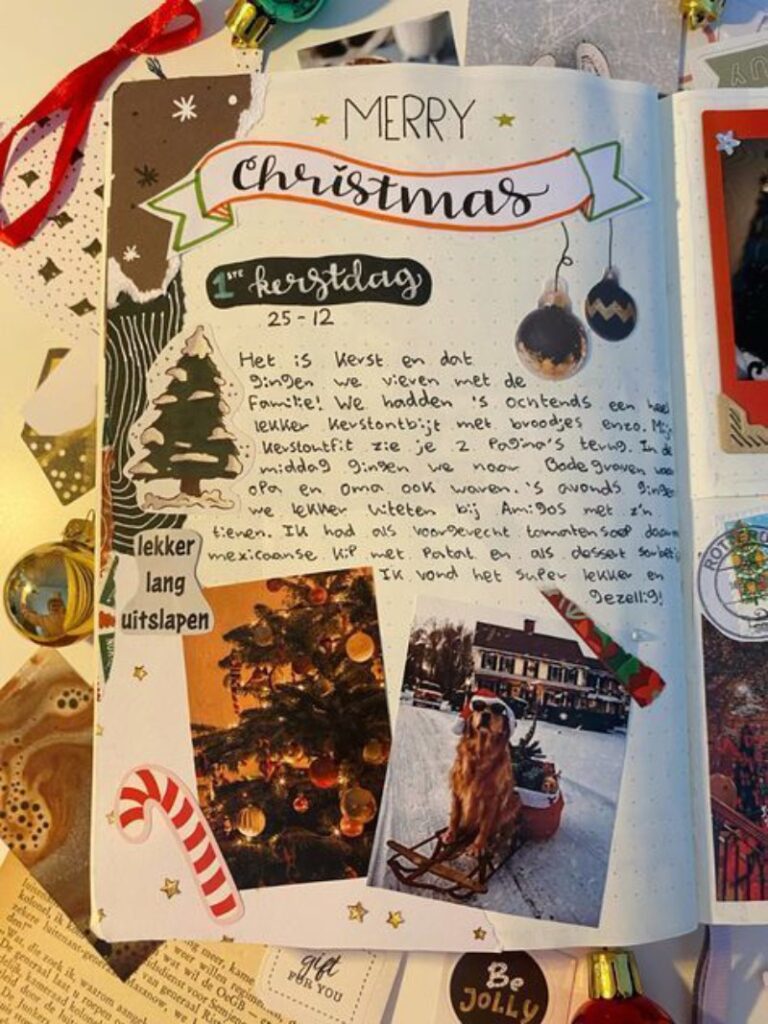 MERRY
Christmas
1STE kerstdag
25-12
Het is kerst en dat
gingen we vieren met de
Familie! We hadden 's ochtends een heel
lekker kerstontbijt met broodjes enzo. Mijn
kerstoutfit zie je 2 Pagina's terug. In de
middag gingen we naar Bodegraven waar
opa en oma ook waren. 's avonds gingen
we lekker uiteten bij Amigos met z'n
tienen. Ik had als voorgerecht tomatensoep daarna
mexicaanse kip met Patat en als dessert sorbetijs
Ik vond het super lekker en
gezellig!
lekker
lang
uitslapen
ROTTER
kolonel, ik
zekere luitenant-gener
den!"
gift
FOR YOU
Be
JOLLY